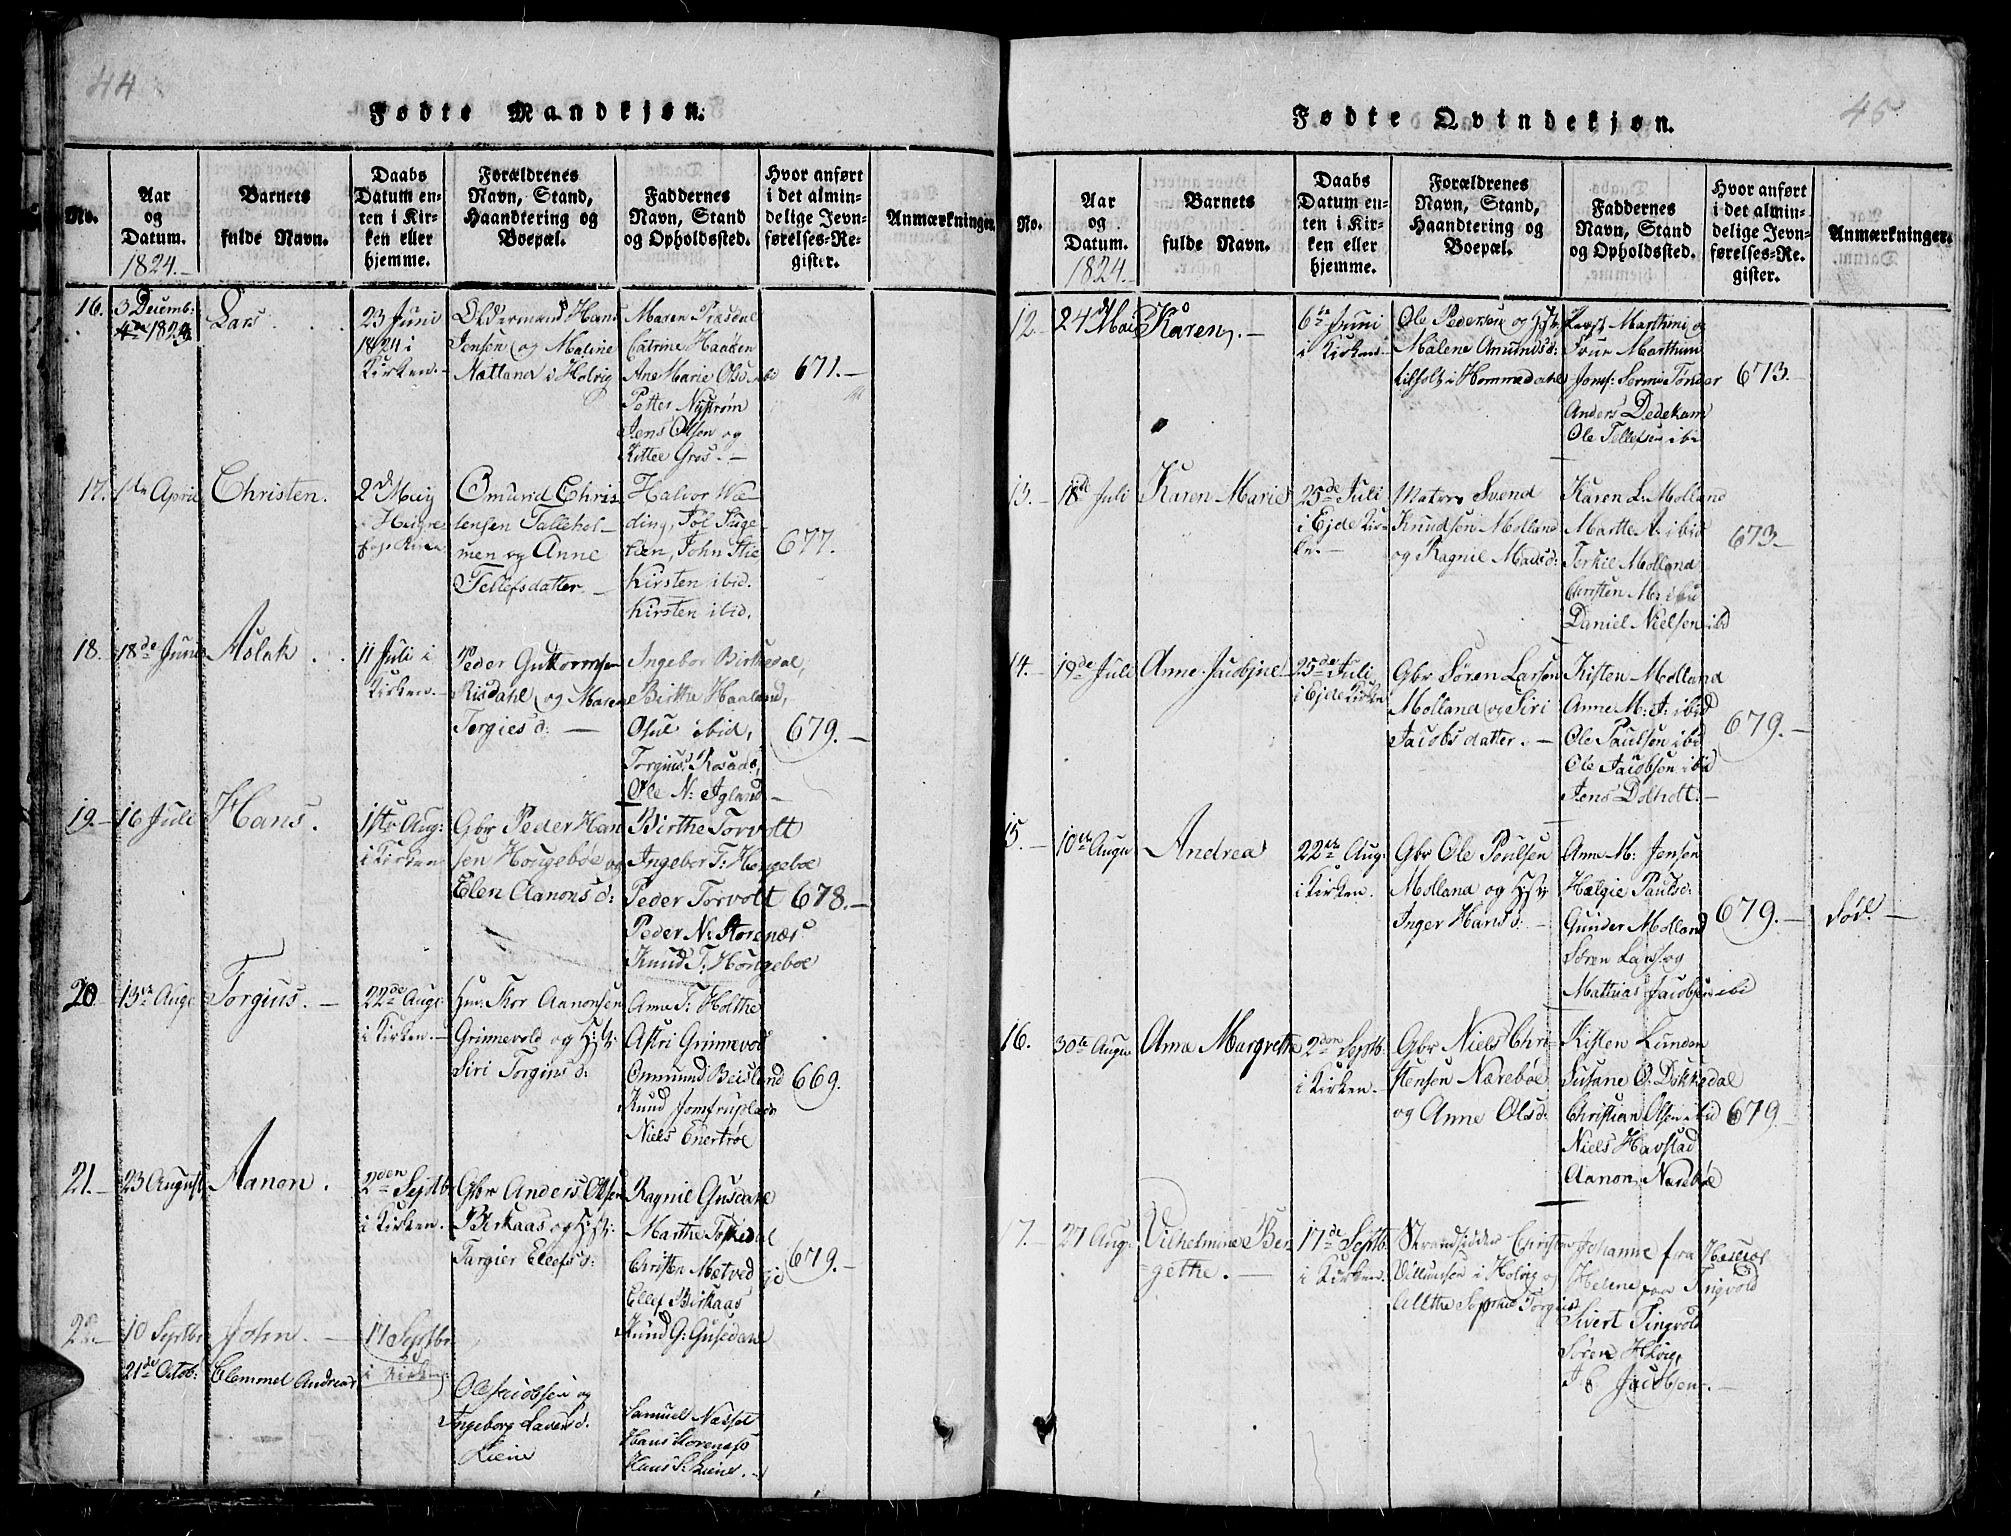 44
Fødte Mandkjøn.
No.
Aar
og
Datum.
1824.-
Barnets
fulde Navn.
Daabs
Datum en-
ten i Kir-
ken eller
hjemme.
Forældrenes
Navn, Stand,
Haandtering og
Boepæl.
Faddernes
Navn, Stand
og Opholdssted.
Hvor anført
i det almin-
delige Jevn-
førelses-Re-
gister.
Anmærkninger.
16.
3 Decemb:
1823
Lars
23 Juni
1824 i
Kirken.-
Oldermand Hans
Jensen og Maline
Nætland i Holvig
Maren Pinsdal
Catrine Haagen
Ane Marie Olsd ibd
Petter Nystrøm
Jens Olson og
Kittee Gros.-
671.-
17.
April
Christen.
2d May
i Høyre
Omund Chris-
tensen Tallehol-
men og Anne
Tellefsdatter.-
Halvor We-
ding,
John Stie
Kirsten ibid.
Kirsten ibid.
677.
18.
18de Juni
Aslak
11 Juli i
Kirken.-
Peder Guttormsen
Risdahl og Maren
Torgiesd:-
Ingebor Birkedal,
Birthe Haaland,
Osul ibid,
Torgius Rosaas,
Ole N: Igland-
679.-
19.-
16 Juli
Hans.
1ste Aug:
i Kirken
Gbr Peder Han
sen Hougebøe og
Elen Aanonsd:
Birthe Torvolt
Ingebor T: Hougeboe
Peder Torvolt
Peder N: Storenæs
Knud T: Hougeboe
678.-
20
13de Augu
Torgius.-
22de Aug:
i Kirken.-
Hm: Thor Aanonsen
Grimevold og H:h:
Siri Torgiusd:
Anne T: Holthe
Astri Grimevold
Ommund Beisland
Knud Jomfruplads
Niels Enertrøe
669.
21.-
23 August
Aanon.
2den Septb.
i Kirken.
Gbr Anders Olsen
Birkaas og H:h:
Targier Ellefsd:
Ragnil Gusdahl
Marthe Topdal
Christen Mætved
Ellef Birkaas
Knud G: Gusedahl
679.-
22.-
10 Septbr
John.-
17 Septbr
i Kirken:
21de Octob:
Clemmet Andreas
Ole Jacobsen og
Ingeborg Laversd.
Liene
Samuel Næsset
Hans Storenæs
Hans S: Liene.-
45
Fødte Qvindekjøn.
No.
Aar
og
Datum.
1824.-
Barnets
fulde Navn.
Daabs
Datum en-
ten i Kir-
ken eller
hjemme.
Forældrenes
Navn, Stand,
Haandtering og
Boepæl.
Faddernes
Navn, Stand
og Opholdssted.
Hvor anført
i det almin-
delige Jevn-
førelses-Re-
gister.
Anmærkninger.
12.-
24d Mai
Karen.-
6te Juni
i Kirken
Ole Pedersen og Hst.
Malene Amundsd:
i Hommedahl
Marthini og
Frue Marthini
Jomf: Tønder
Anders Dedekam
Ole Tellefsen ibd
673.-
13.-
18de Juli
Karen Marie
25de Juli
i Ejde Kir-
ke.-
Matros Svend
Knudsen Molland
og Ragnil Madsd:
Karen L: Molland
Marthe A. ibid
Terkil Molland
Christen M: ibd
Daniel Nielsen ibd
673-
14.-
19de Juli
Anne Jacobine-
25de Juli
i Ejde Kirke
Gbr Søren Larsen
Molland og Siri
Jacobsdatter.-
Kisten Molland
Anne M: J: ibid
Ole Paulsen ibd
Ole Jacobsen ibd
Jens Dolholt.-
679.-
15.-
10de Augu
Andrea
22de Aug:
i Kirken.
Gbr Ole Poulsen
Molland og Hst
Inger Hansd:-
Ane M: Jensen
Hælgie Paulsd:
Gunder Molland
Søren Lars og
Mathias Jacobsen ibd
679.-
død.-
16.
30te Augu
Anna Margrethe
2den Septb.
i Kirken.-
Gbr Niels Chri-
stensen Nærebøe
og Anne Olsd:
Kisten Lunden
Susane O. Dikkedal
Christian Olsen ibd
Niels Havstad
Aanon Nærebøe
679.-
17.-
27 Aug:
Vilhelmine Ber
gethe.-
17de Septb.
i Kirken.
Strandsidder Christen
Villumsen i Holvig og
Alethe Sophie Torgiusd
Johanne fra
Helene fra Ringvold
Sivert Ringvold
Søren Hovig
J. C. Jacobsen.-